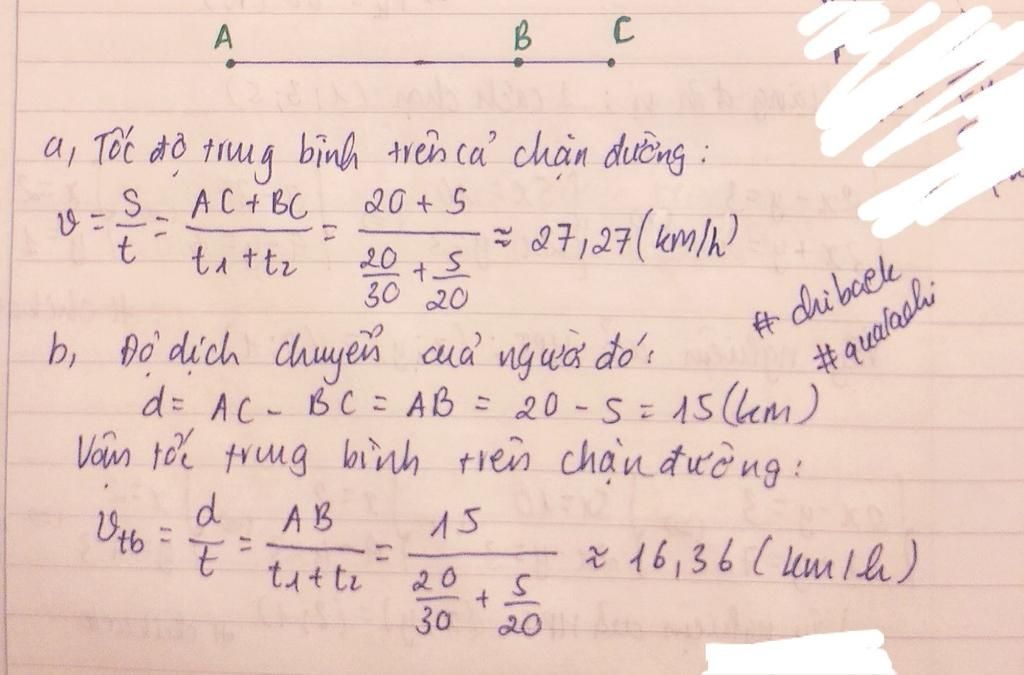 A B C
a, Tốc độ trung bình trên cả chặn đường:
v = S/t = (AC + BC)/(t1 + t2) = (20 + 5)/(20/30 + 5/20) ≈ 27,27 (km/h)
# chibaek
# qualachi
b, Độ dịch chuyển của người đó:
d = AC - BC = AB = 20 - 5 = 15 (km)
Vận tốc trung bình trên chặn đường:
vtb = d/t = AB/(t1 + t2) = 15/(20/30 + 5/20) ≈ 16,36 (km/h)